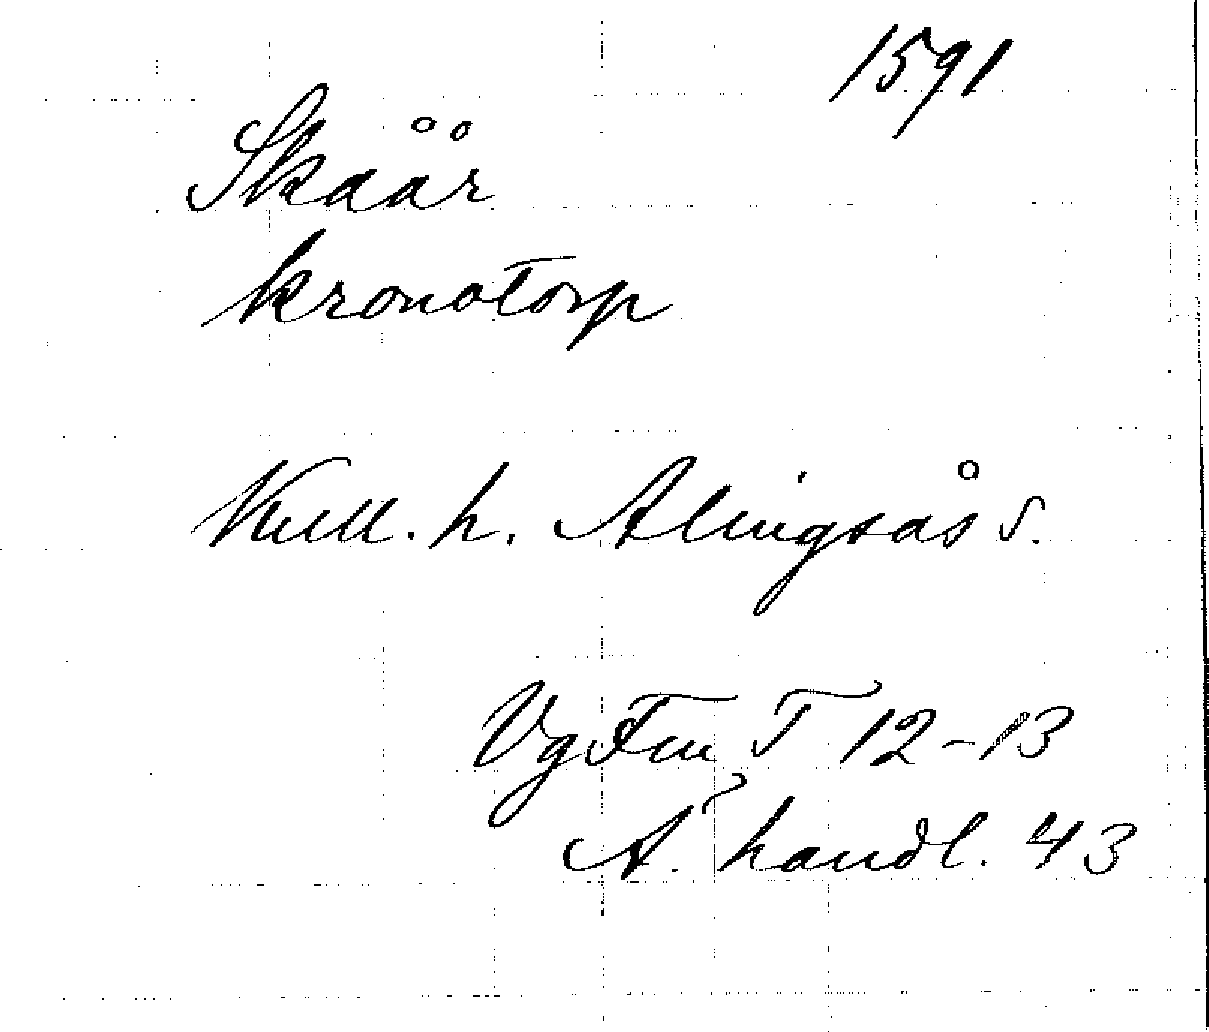 1591
Skåår
kronotorp
Kull. h. Alingsås s.
VgFm T 12-13
A. handl. 43